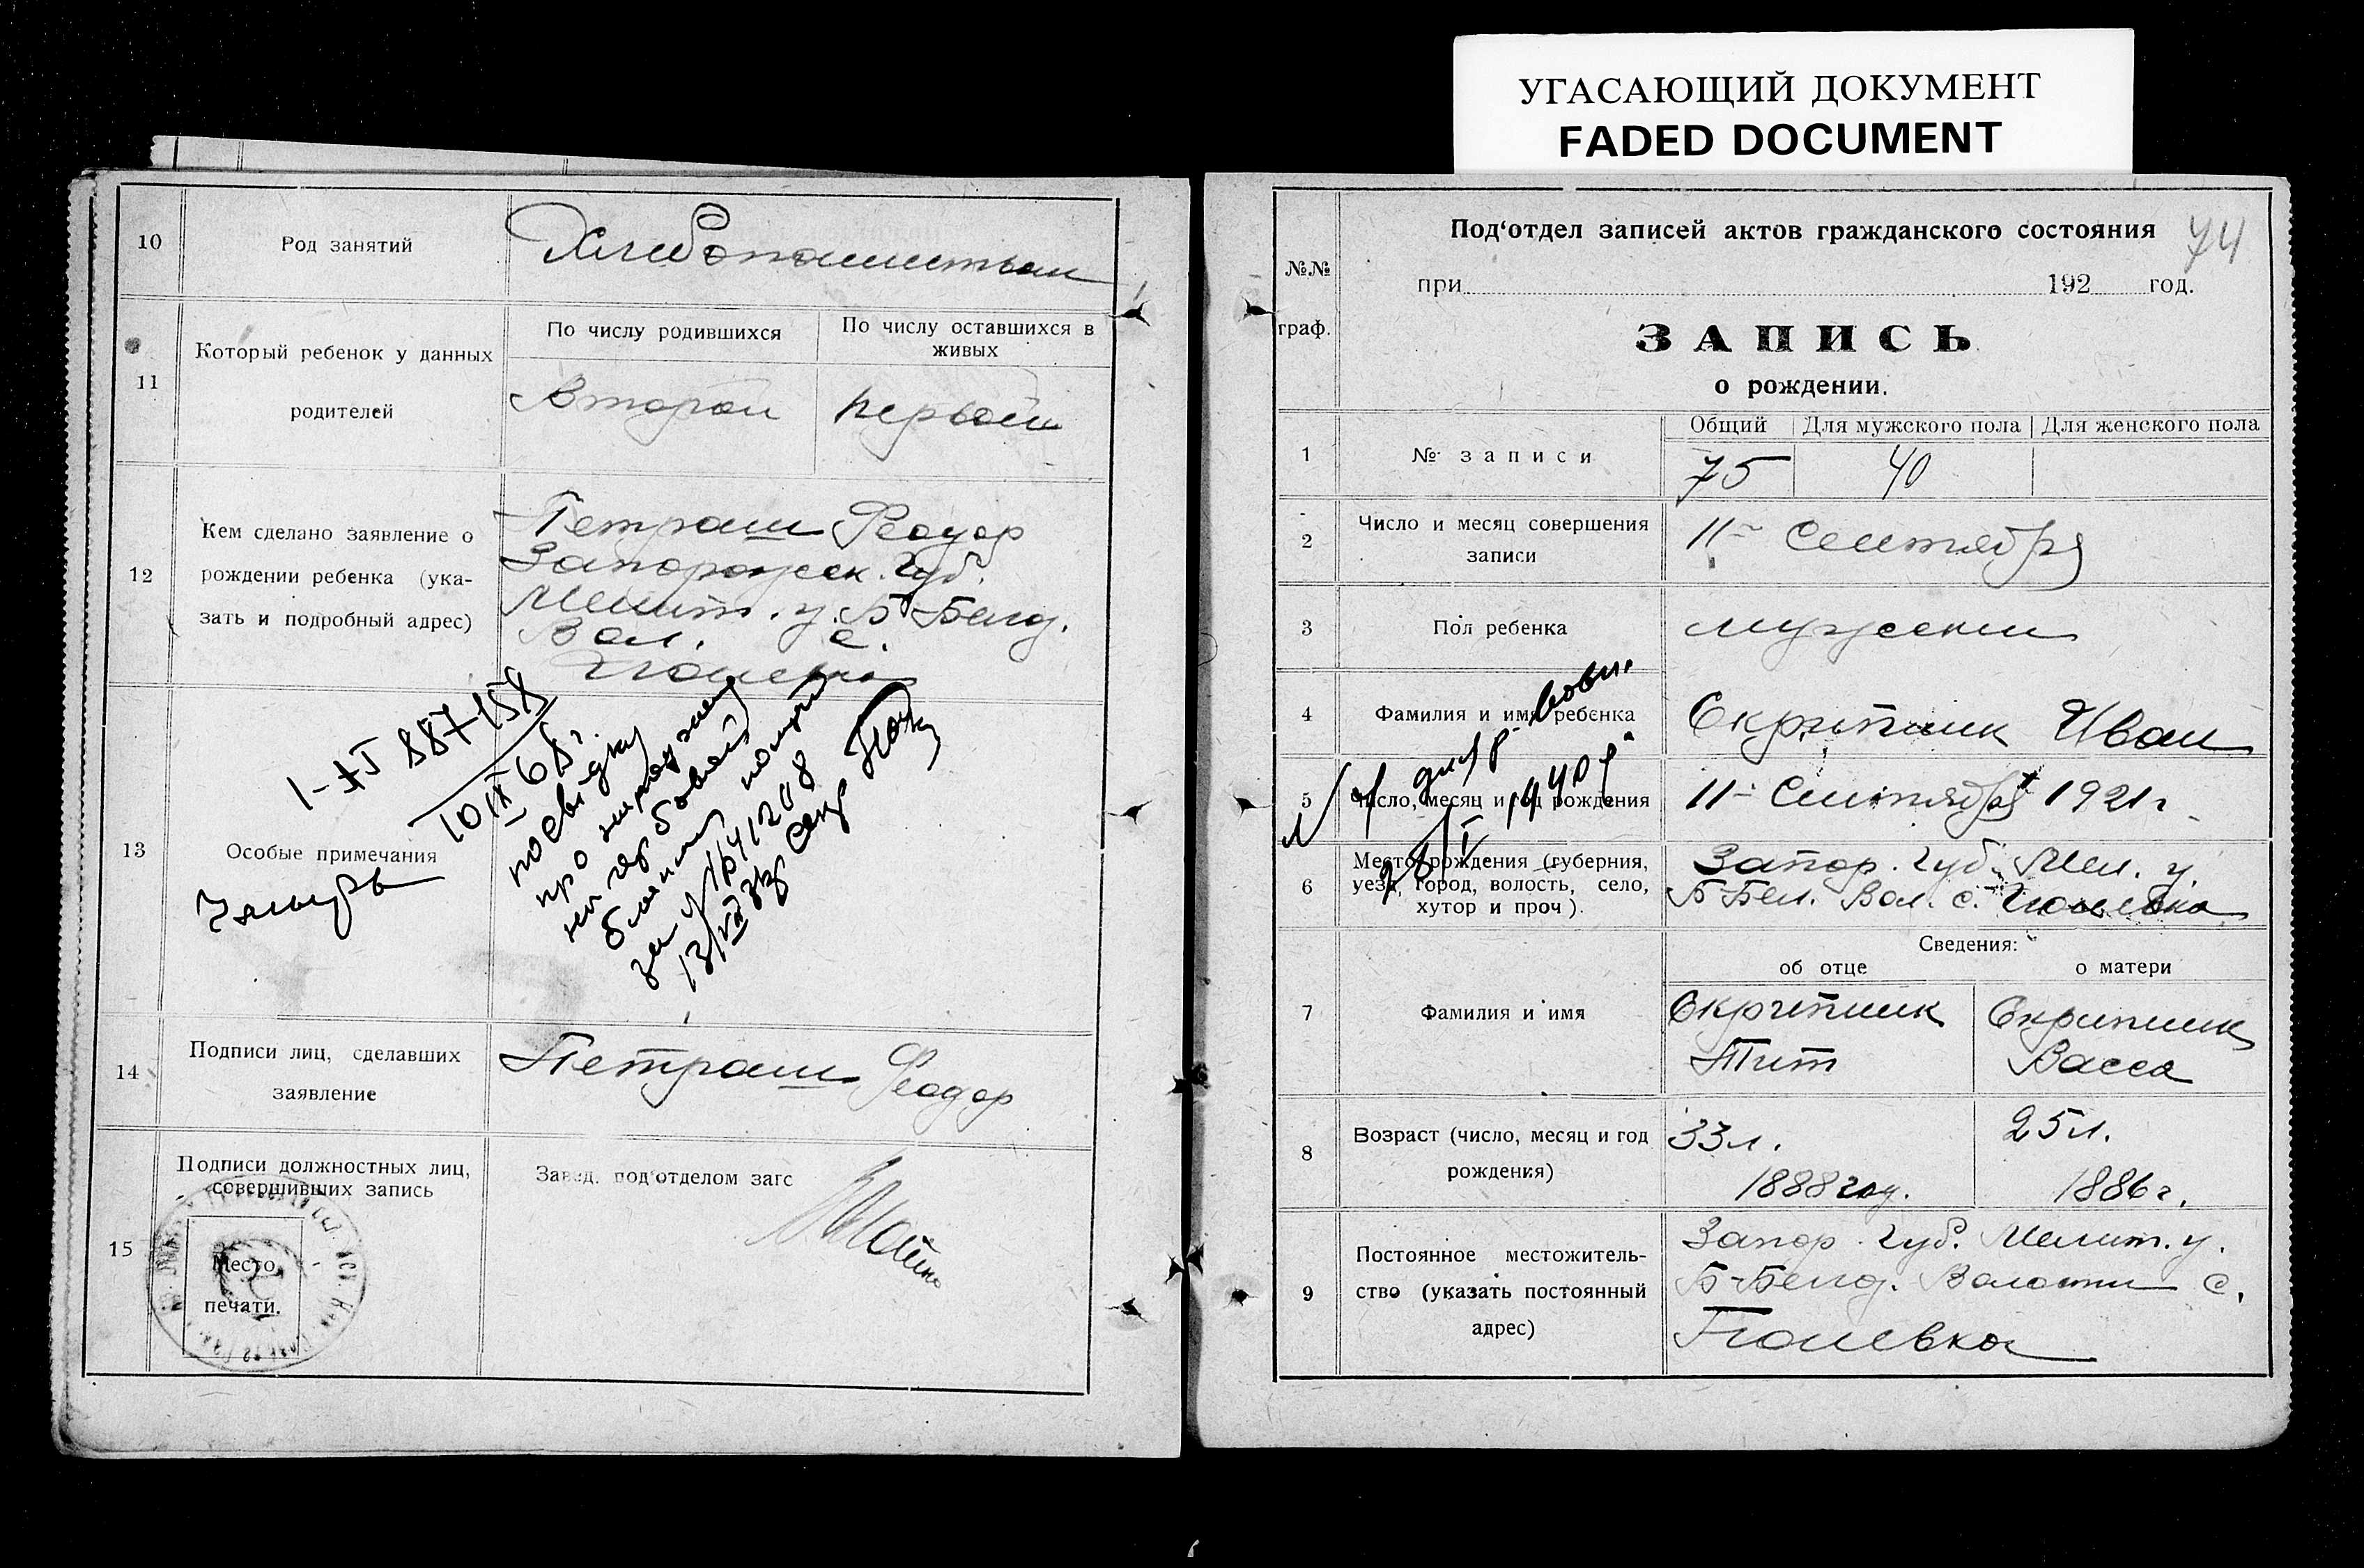 УГАСАЮЩИЙ ДОКУМЕНТ
FADED DOCUMENT
10
Род занятий
Хлебопашеством
11
Который ребенок у данных
родителей
По числу родившихся
По числу оставшихся в
живых
Второй
первый
12
Кем сделано заявление о
рождении ребенка (ука-
зать и подробный адрес)
Петраш Феодор
Запорожск. губ.
Мелит. у. Б-Белоз.
Вол. с.
13
Особые примечания
1-АЭ 887158
10 IX 68 г.
14
Подписи лиц, сделавших
заявление
Петраш Феодор
15
Подписи должностных лиц,
совершивших запись
Место
печати.
Завед. под'отделом загс
74
№№
граф.
Под'отдел записей актов гражданского состояния
при 192 год.
ЗАПИСЬ
о рождении.
1
№ записи
Общий
Для мужского пола
Для женского пола
75
40
2
Число и месяц совершения
записи
11- Сентября
3
Пол ребенка
мужески
4
Фамилия и имя ребенка
Скрипник Иван
5
Число, месяц и год рождения
11- Сентября 1921 г
6
Место рождения (губерния,
уезд, город, волость, село,
хутор и проч).
Запор. губ. Мел. у.
Б-Бел. Вол. с.
Сведения:
об отце
о матери
7
Фамилия и имя
Скрипник
Тит
Скрипник
Васса
8
Возраст (число, месяц и год
рождения)
33 л.
1888 год.
25 л.
1886 г.
9
Постоянное местожитель-
ство (указать постоянный
адрес)
Запор. губ. Мелит. у.
Б-Белоз. Волости с.